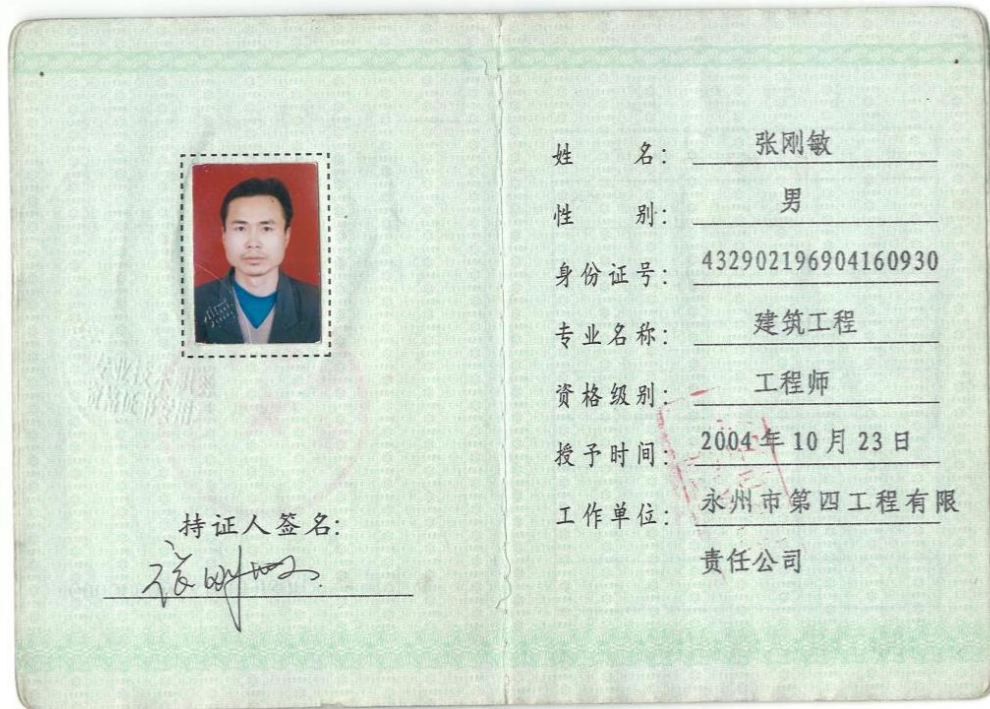 持证人签名:
姓 名: 张刚敏
性 别: 男
身份证号: 432902196904160930
专业名称: 建筑工程
资格级别: 工程师
授予时间: 2004年10月23日
工作单位: 永州市第四工程有限
责任公司